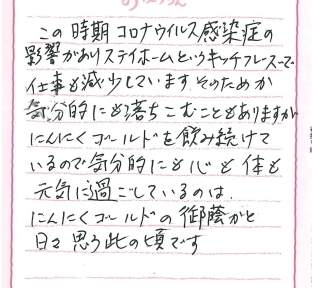 この時期コロナウイルス感染症の
影響がありステイホームというキャッチフレーズで、
仕事も減少しています。そのためか
気分的にも落ちこむこともありますが
にんにくゴールドを飲み続けて
いるので気分的にも心も体も
元気に過ごしているのは、
にんにくゴールドの御蔭かと
日々思う此の頃です